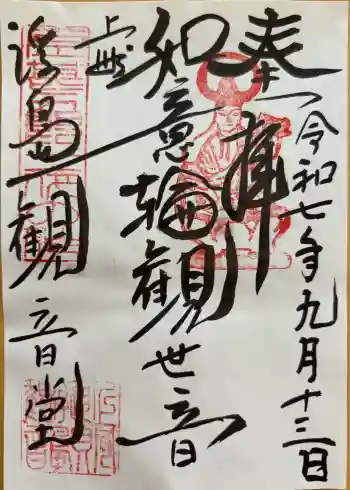 奉拝
令和七年九月十三日
如意輪観世音
上野
清島観音堂